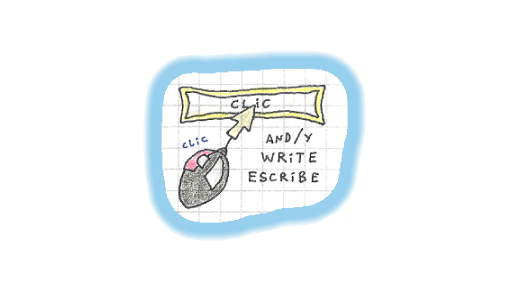 CLiC
CLiC
AND/Y
WRiTE
ESCRiBE